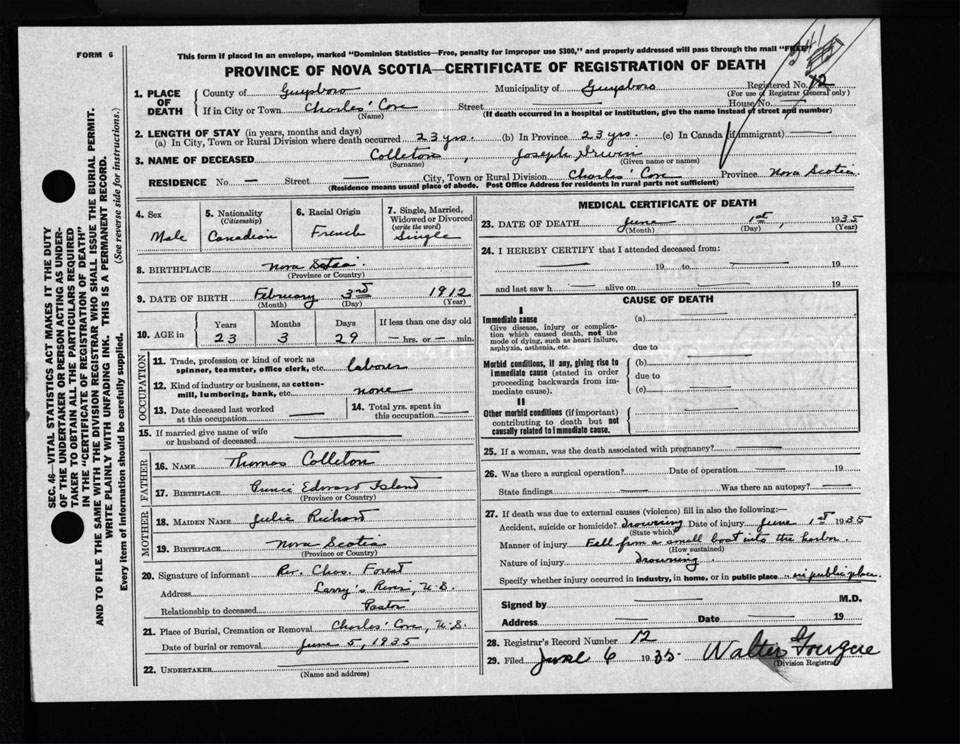 FORM 6
This form if placed in an envelope, marked "Dominion Statistics—Free, penalty for improper use $300," and properly addressed will pass through the mail "FREE"
PROVINCE OF NOVA SCOTIA—CERTIFICATE OF REGISTRATION OF DEATH
SEC. 46—VITAL STATISTICS ACT MAKES IT THE DUTY
OF THE UNDERTAKER OR PERSON ACTING AS UNDER-
TAKER TO OBTAIN ALL THE PARTICULARS REQUIRED
IN THE "CERTIFICATE OF REGISTRATION OF DEATH"
AND TO FILE THE SAME WITH THE DIVISION REGISTRAR WHO SHALL ISSUE THE BURIAL PERMIT.
WRITE PLAINLY WITH UNFADING INK. THIS IS A PERMANENT RECORD.
Every item of information should be carefully supplied. (See reverse side for instructions.)
1. PLACE OF DEATH
County of Guysboro Municipality of Guysboro Registered No. 12
(For use of Registrar General only)
If in City or Town Charles' Cove Street House No.
(Name) (If death occurred in a hospital or institution, give the name instead of street and number)
2. LENGTH OF STAY (in years, months and days)
(a) In City, Town or Rural Division where death occurred 23 yrs. (b) In Province 23 yrs. (c) In Canada (if immigrant)
3. NAME OF DECEASED Colleton, Joseph Irwin
(Surname) (Given name or names)
RESIDENCE No. — Street — City, Town or Rural Division Charles' Cove Province Nova Scotia
(Residence means usual place of abode. Post Office Address for residents in rural parts not sufficient)
4. Sex
Male
5. Nationality
(Citizenship)
Canadian
6. Racial Origin
French
7. Single, Married, Widowed or Divorced
(write the word)
Single
8. BIRTHPLACE Nova Sotia
(Province or Country)
9. DATE OF BIRTH February 3rd 1912
(Month) (Day) (Year)
10. AGE in
Years Months Days If less than one day old
23 3 29 — hrs. or — min.
OCCUPATION
11. Trade, profession or kind of work as
spinner, teamster, office clerk, etc. laborer
12. Kind of industry or business, as cotton-
mill, lumbering, bank, etc. none
13. Date deceased last worked
at this occupation
14. Total yrs. spent in
this occupation
15. If married give name of wife
or husband of deceased
FATHER
16. NAME Thomas Colleton
17. BIRTHPLACE Prince Edward Island
(Province or Country)
MOTHER
18. MAIDEN NAME Julie Richard
19. BIRTHPLACE Nova Scotia
(Province or Country)
20. Signature of informant Rev. Chas. Forest
Address Larry's River, N.S.
Relationship to deceased Pastor
21. Place of Burial, Cremation or Removal Charles' Cove, N.S.
Date of burial or removal June 5, 1935
22. UNDERTAKER
(Name and address)
MEDICAL CERTIFICATE OF DEATH
23. DATE OF DEATH June 1st, 1935
(Month) (Day) (Year)
24. I HEREBY CERTIFY that I attended deceased from:
19 to 19
and last saw h alive on 19
CAUSE OF DEATH
I
Immediate cause (a)
Give disease, injury or complica-
tion which caused death, not the
mode of dying, such as heart failure,
asphyxia, asthenia, etc. due to
Morbid conditions, if any, giving rise to
immediate cause (stated in order
proceeding backwards from im-
mediate cause).
(b)
due to
(c)
II
Other morbid conditions (if important)
contributing to death but not
causally related to immediate cause.
25. If a woman, was the death associated with pregnancy?
26. Was there a surgical operation? Date of operation 19
State findings Was there an autopsy?
27. If death was due to external causes (violence) fill in also the following:—
Accident, suicide or homicide? drowning Date of injury June 1st 1935
(State which)
Manner of injury Fell from a small boat into the harbor.
(How sustained)
Nature of injury drowning.
Specify whether injury occurred in industry, in home, or in public place in public place.
Signed by M.D.
Address Date 19
28. Registrar's Record Number 12
29. Filed June 6 1935 Walter
(Division Registrar)